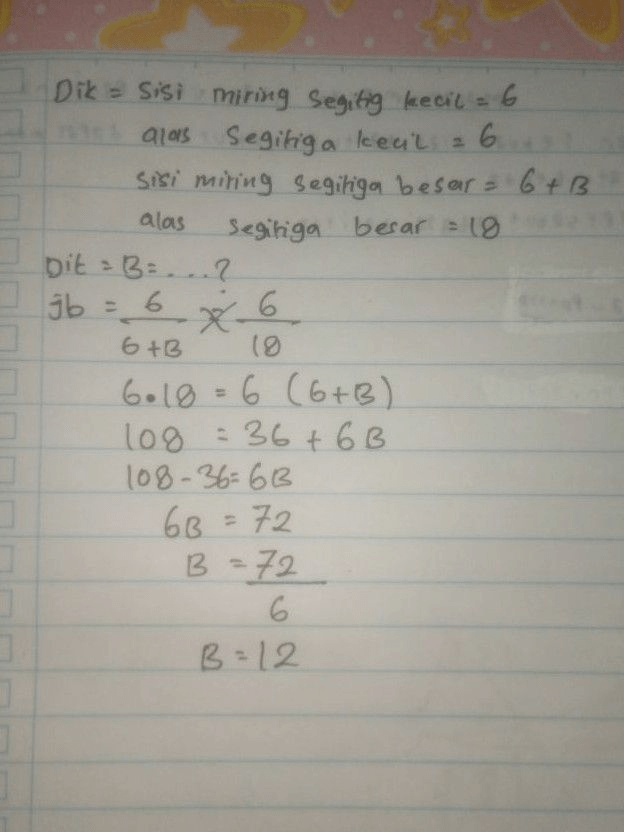 Dik = Sisi miring Segitig kecil = 6
alas Segitiga kecil = 6
sisi miring segitiga besar = 6 + B
alas segitiga besar = 18
Dit = B = ....?
jb = 6/(6+B) = 6/18
6.18 = 6 (6+B)
108 = 36 + 6B
108 - 36 = 6B
6B = 72
B = 72/6
B = 12